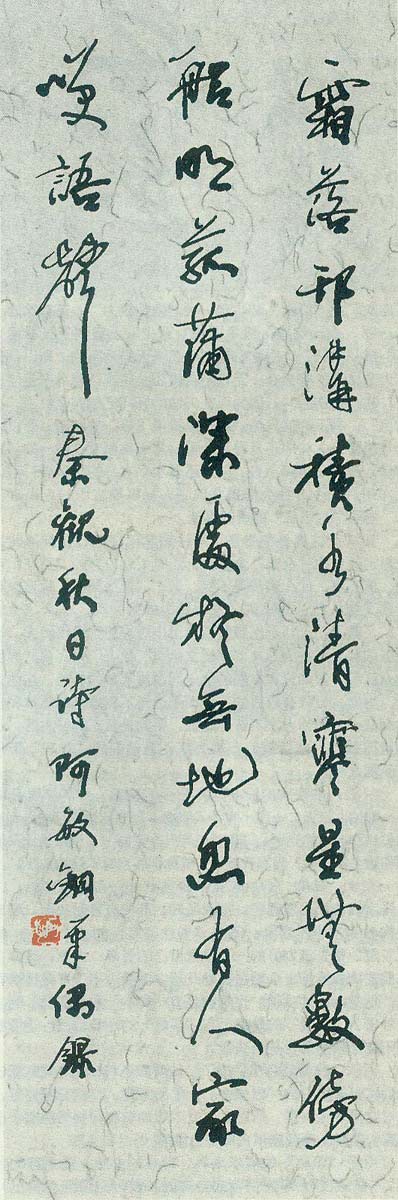 霜落邗溝積水清寒星無數傍
船明菰蒲深處疑無地忽有人家
笑語聲 秦觀秋日詩 阿敏鋼筆偶錄